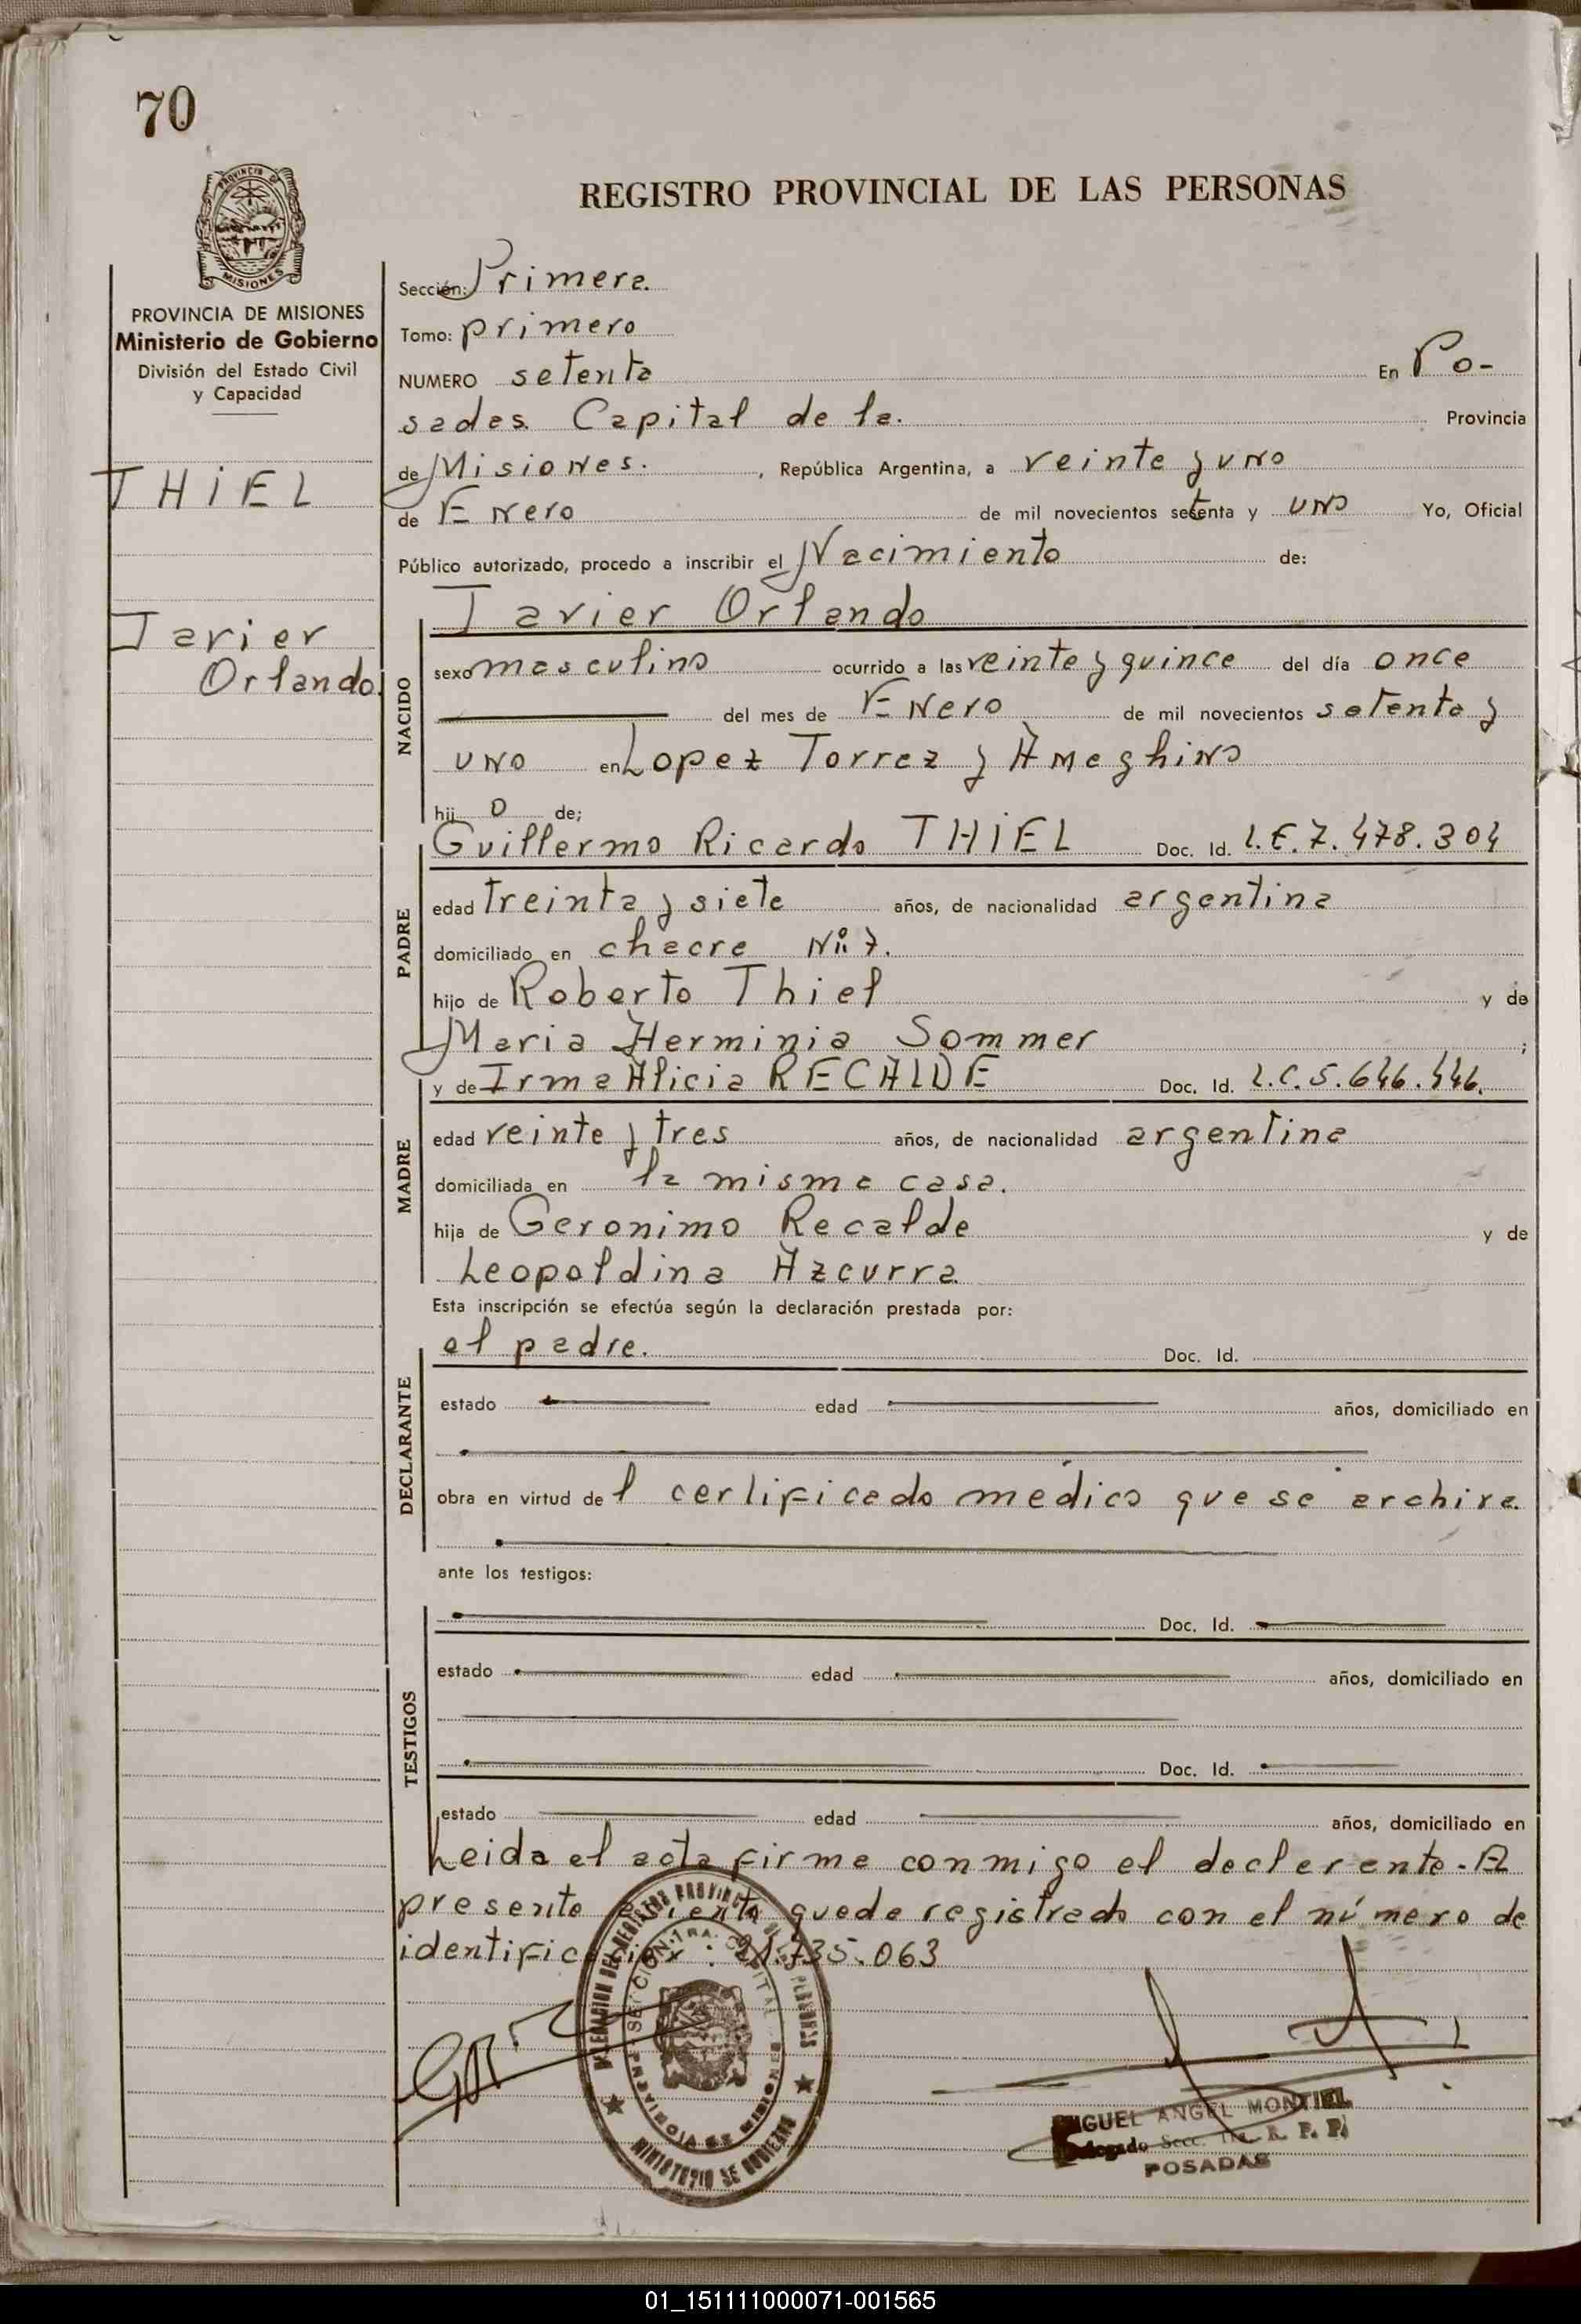 70
PROVINCIA DE
MISIONES
REGISTRO PROVINCIAL DE LAS PERSONAS
PROVINCIA DE MISIONES
Ministerio de Gobierno
División del Estado Civil
y Capacidad
THiEL
Javier
Orlando.
Sección: Primera.
Tomo: primero
NUMERO setenta En Po-
sadas. Capital de la. Provincia
de Misiones. , República Argentina, a veinte y uno
de Enero de mil novecientos setenta y uno Yo, Oficial
Público autorizado, procedo a inscribir el Nacimiento de:
NACIDO
Javier Orlando
sexo masculino ocurrido a las veinte y quince del día once
del mes de Enero de mil novecientos setenta y
uno en Lopez Torrez y Ameghino
hij o de;
PADRE
Guillermo Ricardo THiEL Doc. Id. L.E.7.478.304
edad treinta y siete años, de nacionalidad argentina
domiciliado en chacra Nº 7.
hijo de Roberto Thiel y de
Maria Herminia Sommer ;
MADRE
y de Irma Alicia RECALDE Doc. Id. L.C.5.646.446.
edad veinte y tres años, de nacionalidad argentina
domiciliada en la misma casa.
hija de Geronimo Recalde y de
Leopoldina Azcurra
Esta inscripción se efectúa según la declaración prestada por:
DECLARANTE
el padre. Doc. Id.
estado edad años, domiciliado en
obra en virtud de l certificado médico que se archiva.
ante los testigos:
TESTIGOS
Doc. Id.
estado edad años, domiciliado en
Doc. Id.
estado edad años, domiciliado en
Leida el acta firma conmigo el declarante. El
presente queda registrado con el número de
identificación : 21.735.063
DELEGACION DEL REGISTRO PROVINCIAL DE LAS PERSONAS
SECCION 1RA. CAPITAL
PROVINCIA DE MISIONES
MINISTERIO DE GOBIERNO
MIGUEL ANGEL MONTIEL
Delegado Secc. 1ra. R. P. P.
POSADAS
01_151111000071-001565